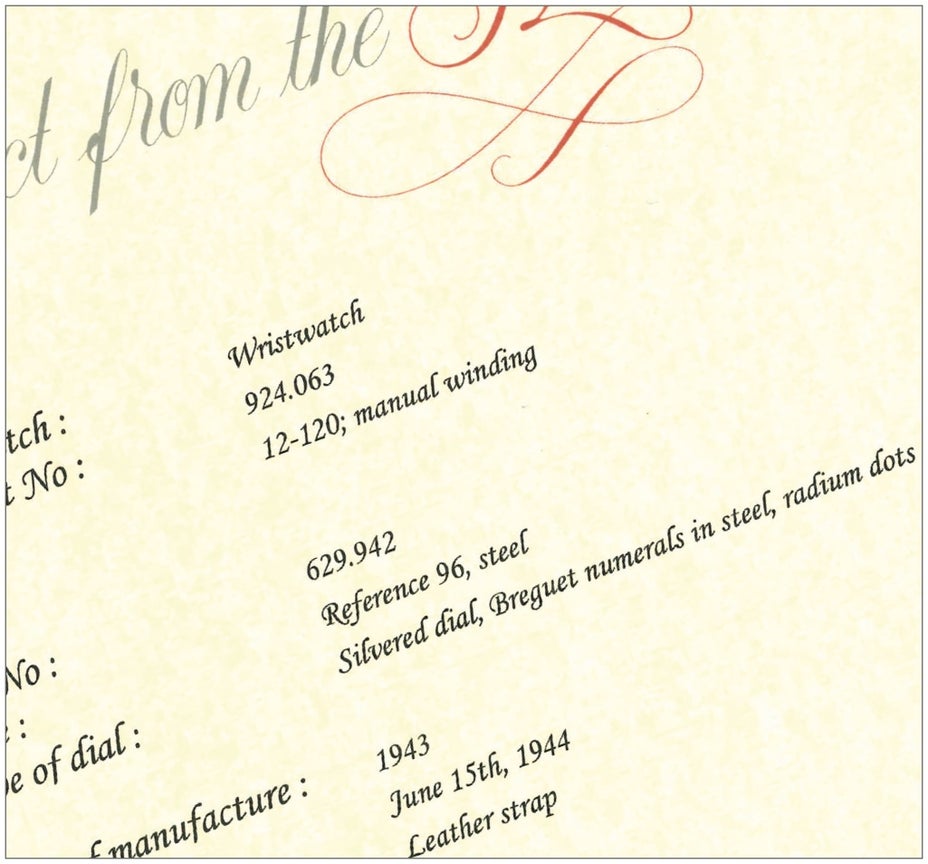 from the
Wristwatch
924.063
12-120; manual winding
No :
629.942
Reference 96, steel
Silvered dial, Breguet numerals in steel, radium dots
No :
of dial :
1943
manufacture :
June 15th, 1944
Leather strap